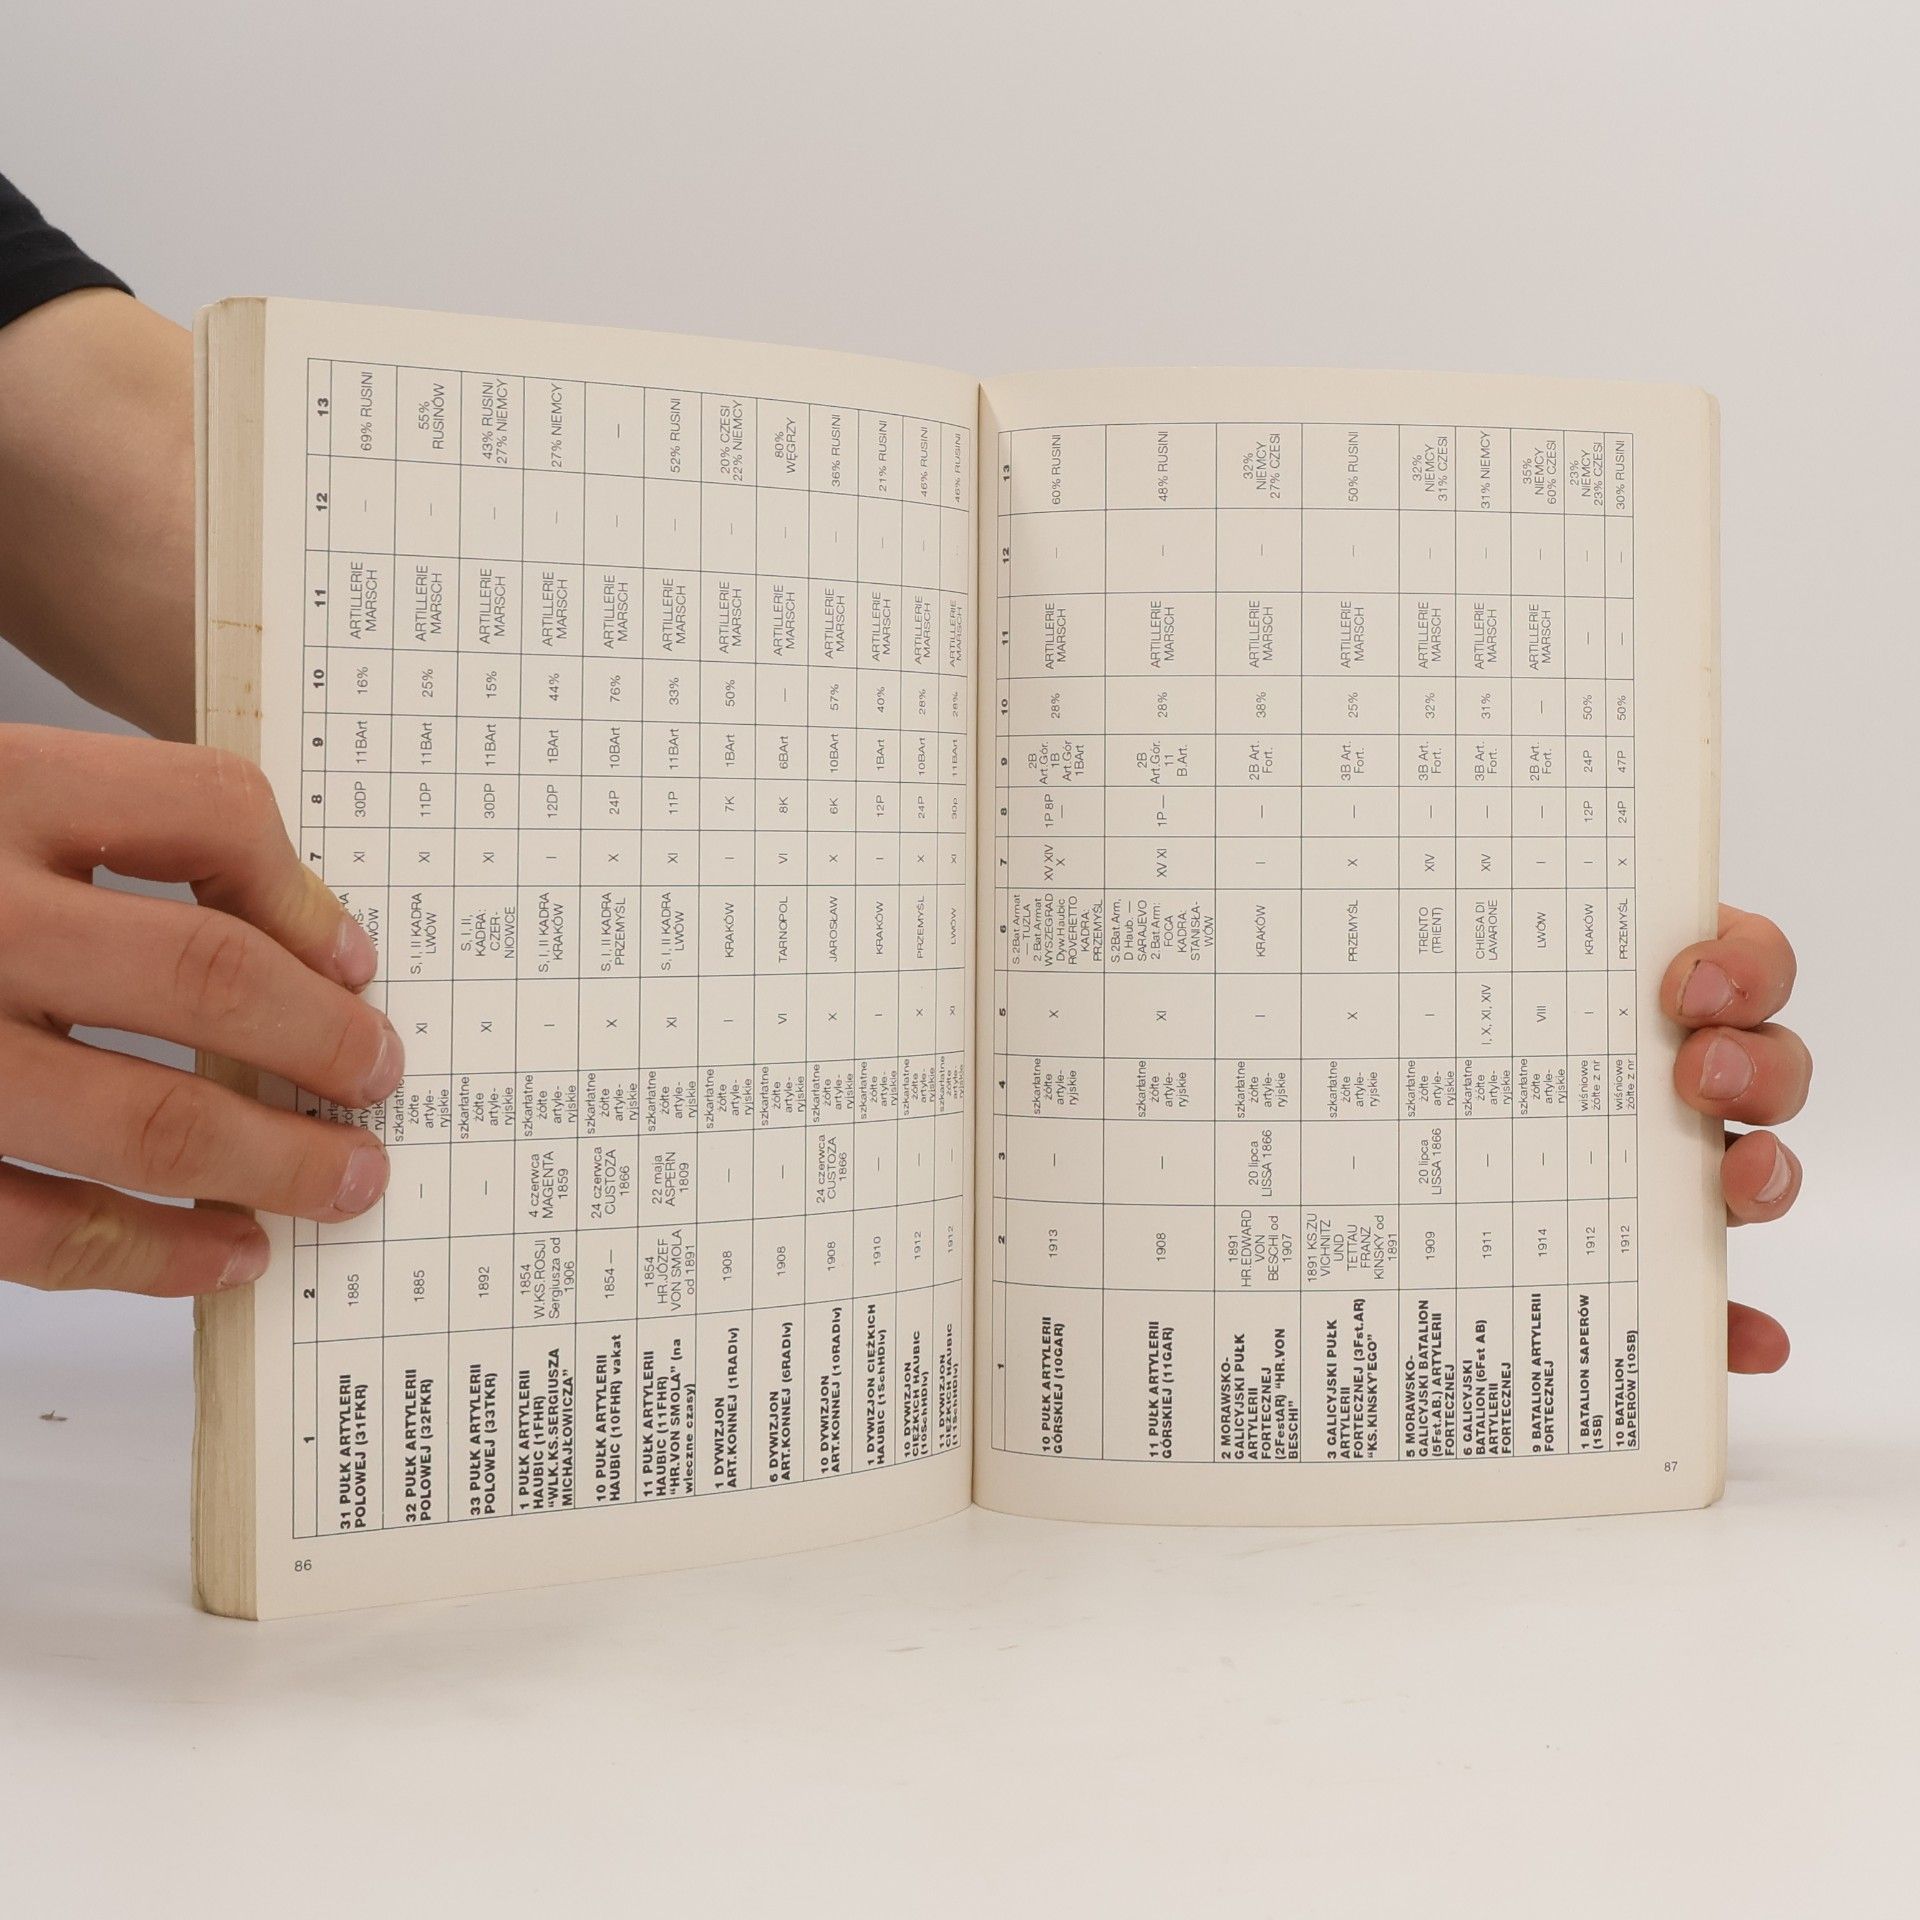 1 2 4 7 8 9 10 11 12 13
31 PUŁK ARTYLERII
POLOWEJ (31FKR)
1885
XI
30DP
11BArt
16%
ARTILLERIE
MARSCH
—
69% RUSINI
32 PUŁK ARTYLERII
POLOWEJ (32FKR)
1885
—
szkarłatne
żółte
artyle-
ryjskie
XI
S, I, II KADRA
LWÓW
XI
11DP
11BArt
25%
ARTILLERIE
MARSCH
—
55%
RUSINÓW
33 PUŁK ARTYLERII
POLOWEJ (33TKR)
1892
—
szkarłatne
żółte
artyle-
ryjskie
XI
S, I, II,
KADRA:
CZER-
NIOWCE
XI
30DP
11BArt
15%
ARTILLERIE
MARSCH
—
43% RUSINI
27% NIEMCY
1 PUŁK ARTYLERII
HAUBIC (1FHR)
“WLK.KS.SERGIUSZA
MICHAJŁOWICZA”
1854
W.KS.ROSJI
Sergiusza od
1906
4 czerwca
MAGENTA
1859
szkarłatne
żółte
artyle-
ryjskie
I
S, I, II KADRA
KRAKÓW
I
12DP
1BArt
44%
ARTILLERIE
MARSCH
—
27% NIEMCY
10 PUŁK ARTYLERII
HAUBIC (10FHR) vakat
1854 —
24 czerwca
CUSTOZA
1866
szkarłatne
żółte
artyle-
ryjskie
X
S, I, II KADRA
PRZEMYŚL
X
24P
10BArt
76%
ARTILLERIE
MARSCH
—
—
11 PUŁK ARTYLERII
HAUBIC (11FHR)
“HR.VON SMOLA” (na
wieczne czasy)
1854
HR.JÓZEF
VON SMOLA
od 1891
22 maja
ASPERN
1809
szkarłatne
żółte
artyle-
ryjskie
XI
S, I, II KADRA
LWÓW
XI
11P
11BArt
33%
ARTILLERIE
MARSCH
—
52% RUSINI
1 DYWIZJON
ART.KONNEJ (1RADiv)
1908
—
szkarłatne
żółte
artyle-
ryjskie
I
KRAKÓW
I
7K
1BArt
50%
ARTILLERIE
MARSCH
—
20% CZESI
22% NIEMCY
6 DYWIZJON
ART.KONNEJ (6RADiv)
1908
—
szkarłatne
żółte
artyle-
ryjskie
VI
TARNOPOL
VI
8K
6BArt
—
ARTILLERIE
MARSCH
—
80%
WĘGRZY
10 DYWIZJON
ART.KONNEJ (10RADiv)
1908
24 czerwca
CUSTOZA
1866
szkarłatne
żółte
artyle-
ryjskie
X
JAROSŁAW
X
6K
10BArt
57%
ARTILLERIE
MARSCH
—
36% RUSINI
1 DYWIZJON CIĘŻKICH
HAUBIC (1SchHDiv)
1910
—
szkarłatne
żółte
artyle-
ryjskie
I
KRAKÓW
I
12P
1BArt
40%
ARTILLERIE
MARSCH
—
21% RUSINI
10 DYWIZJON
CIĘŻKICH HAUBIC
(10SchHDiv)
1912
—
szkarłatne
żółte
artyle-
ryjskie
X
PRZEMYŚL
X
24P
10BArt
28%
ARTILLERIE
MARSCH
—
46% RUSINI
11 DYWIZJON
CIĘŻKICH HAUBIC
(11SchHDiv)
1912
—
szkarłatne
żółte
artyle-
ryjskie
XI
LWÓW
XI
30p
11BArt
28%
ARTILLERIE
MARSCH
46% RUSINI
86
1 2 3 4 5 6 7 8 9 10 11 12 13
10 PUŁK ARTYLERII
GÓRSKIEJ (10GAR)
1913
—
szkarłatne
żółte
artyle-
ryjskie
X
S. 2Bat.Armat
— TUZLA
2.Bat.Armat
WYSZEGRAD
Dyw.Haubic
ROVERETTO
KADRA:
PRZEMYŚL
XV XIV
X
1P 8P
—
2B
Art.Gór.
1B
Art.Gór
1BArt
28%
ARTILLERIE
MARSCH
—
60% RUSINI
11 PUŁK ARTYLERII
GÓRSKIEJ (11GAR)
1908
—
szkarłatne
żółte
artyle-
ryjskie
XI
S.2Bat.Arm,
D Haub. —
SARAJEVO
2.Bat.Arm:
FOCA
KADRA:
STANISŁA-
WÓW
XV XI
1P —
2B
Art.Gór.
11
B.Art.
28%
ARTILLERIE
MARSCH
—
48% RUSINI
2 MORAWSKO-
GALICYJSKI PUŁK
ARTYLERII
FORTECZNEJ
(2FestAR) “HR.VON
BESCHI”
1891
HR.EDWARD
VON
BESCHI od
1907
20 lipca
LISSA 1866
szkarłatne
żółte
artyle-
ryjskie
I
KRAKÓW
I
—
2B Art.
Fort.
38%
ARTILLERIE
MARSCH
—
32%
NIEMCY
27% CZESI
3 GALICYJSKI PUŁK
ARTYLERII
FORTECZNEJ (3Fst.AR)
“KS.KINSKY’EGO”
1891 KS.ZU
VICHNITZ
UND
TETTAU
FRANZ
KINSKY od
1891
—
szkarłatne
żółte
artyle-
ryjskie
X
PRZEMYŚL
X
—
3B Art.
Fort.
25%
ARTILLERIE
MARSCH
—
50% RUSINI
5 MORAWSKO-
GALICYJSKI BATALION
(5Fst.AB.) ARTYLERII
FORTECZNEJ
1909
20 lipca
LISSA 1866
szkarłatne
żółte
artyle-
ryjskie
I
TRENTO
(TRIENT)
XIV
—
3B Art.
Fort.
32%
ARTILLERIE
MARSCH
—
32%
NIEMCY
31% CZESI
6 GALICYJSKI
BATALION (6Fst AB)
ARTYLERII
FORTECZNEJ
1911
—
szkarłatne
żółte
artyle-
ryjskie
I, X, XI, XIV
CHIESA DI
LAVARONE
XIV
—
3B Art.
Fort.
31%
ARTILLERIE
MARSCH
—
31% NIEMCY
9 BATALION ARTYLERII
FORTECZNEJ
1914
—
szkarłatne
żółte
artyle-
ryjskie
VIII
LWÓW
I
—
2B Art.
Fort.
—
ARTILLERIE
MARSCH
—
35%
NIEMCY
60% CZESI
1 BATALION SAPERÓW
(1SB)
1912
—
wiśniowe
żółte z nr
I
KRAKÓW
I
12P
24P
50%
—
—
23%
NIEMCY
23% CZESI
10 BATALION
SAPERÓW (10SB)
1912
—
wiśniowe
żółte z nr
X
PRZEMYŚL
X
24P
47P
50%
—
—
30% RUSINI
87